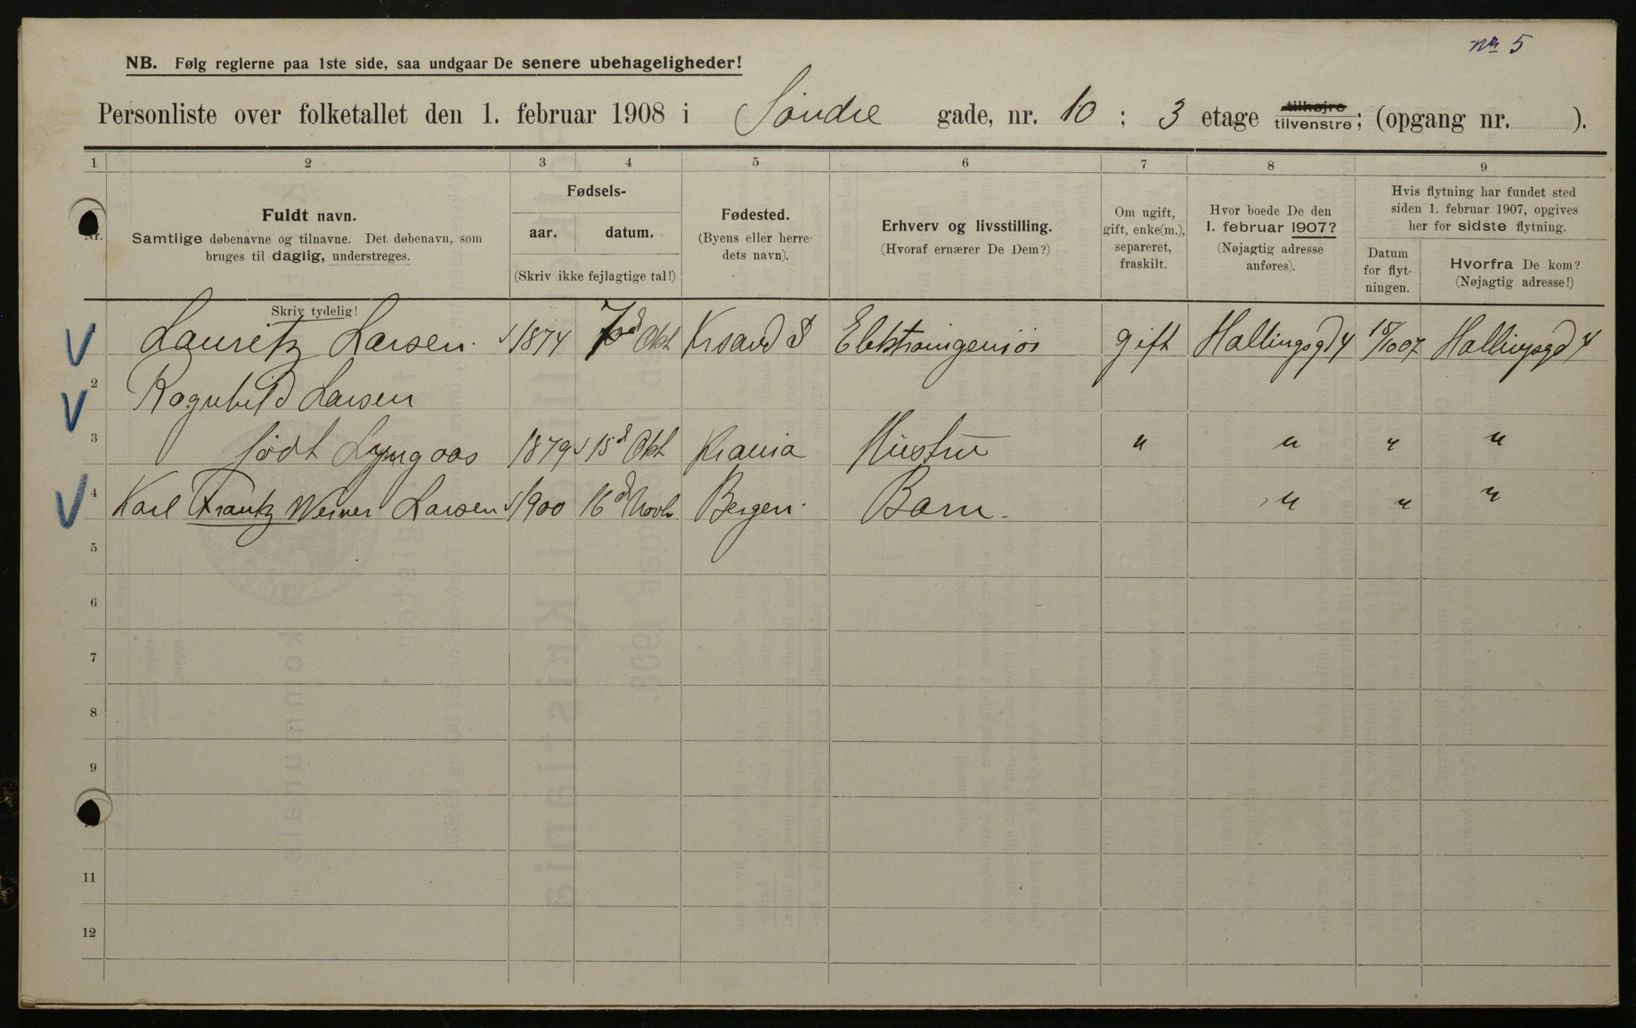 nr 5
NB. Følg reglerne paa 1ste side, saa undgaar De senere ubehageligheder!
Personliste over folketallet den 1. februar 1908 i Søndre gade, nr. 10 ; 3 etage tilhøjre tilvenstre; (opgang nr. ).
1 2 3 4 5 6 7 8 9
Nr.
Fuldt navn.
Samtlige døbenavne og tilnavne. Det døbenavn, som
bruges til daglig, understreges.
Skriv tydelig!
Fødsels-
aar. datum.
(Skriv ikke fejlagtige tal!)
Fødested.
(Byens eller herre-
dets navn).
Erhverv og livsstilling.
(Hvoraf ernærer De Dem?)
Om ugift,
gift, enke(m.),
separeret,
fraskilt.
Hvor boede De den
1. februar 1907?
(Nøjagtig adresse
anføres).
Hvis flytning har fundet sted
siden 1. februar 1907, opgives
her for sidste flytning.
Datum
for flyt-
ningen.
Hvorfra De kom?
(Nøjagtig adresse!)
Lauritz Larsen. 1874 7d Okt Krsand S Elektroingeniør gift Hallingsgd 4 18/10 07 Hallingsgd 4
2 Ragnhild Larsen
3 født Lyngaas 1879 15d Okt Krania Hustru " " " "
4 Karl Frantz Werner Larsen 1900 16d Novbr Bergen. Barn. " " "
5
6
7
8
9
11
12